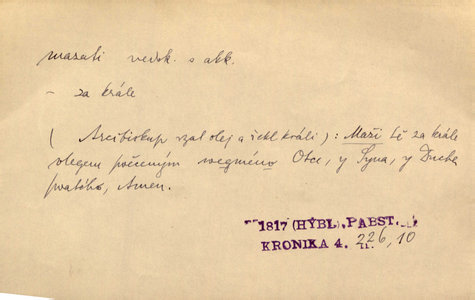 mazati vedok. s akk.
– za krále
( Arcibiskup vzal olej a řekl králi ) : Maži tě za krále
olegem swěceným wegméno Otce, y Syna, y Ducha
swatého, Amen.
1817 (HÝBL), PABST.
KRONIKA 4. 226, 10